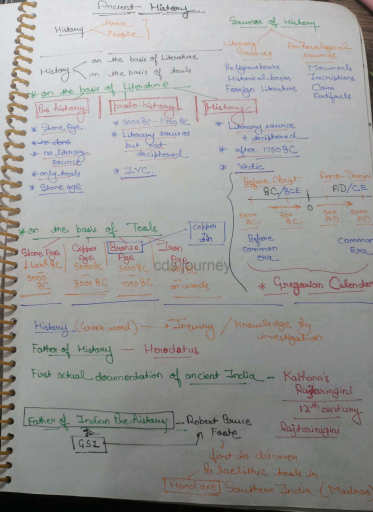 Ancient History
History
Area
People
Sources of History
Literary Sources
Archaeological sources
Religious books
Historical books
Foreign Literature
Monuments
Inscriptions
Coins
Artifacts
History
on the basis of Literature
on the basis of tools
* on the basis of Literature
Pre history
proto-history
History
* Stone Age
* no literary source
* only tools
* Stone age
* 3000 BC - 1750 BC
* Literary source but not deciphered
* IVC
* Literary source + deciphered
* after 1750 BC
* Vedic
Before Christ
BC/BCE
AD/CE
0
Before common era
Common Era
* Gregorian Calendar
* on the basis of Tools
Copper + tin
Stone Age
Copper Age
Bronze Age
Iron Age
3000 BC
1000 BC
cdsjourney
History (Greek word) → Inquiry / knowledge by investigation
Father of History — Herodatus
First actual documentation of ancient India — Kalhana's
Rajtaringini
12th century
Rajtaringini
Father of Indian Pre-history — Robert Bruce
Foote
GSI
first to discover
Palaeolithic tools in
Southern India (Madras)